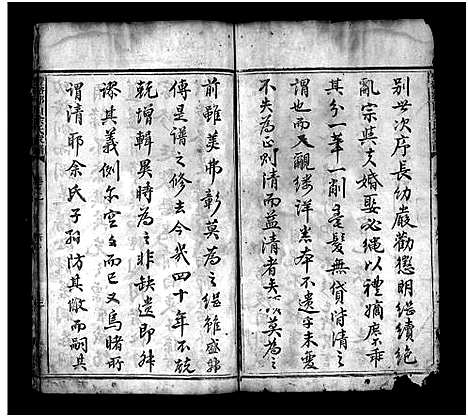 別世次序長幼嚴勸懲明繼續絕
亂宗與夫婚娶必繩以禮嫡庶不乖
其分一筆一削毫髮無貸皆清之
謂也而又覼縷詳悉本不遺乎末變
不失為正則清而益清者矣 莫為之
前雖美弗彰莫為之繼雖盛弗
傳是譜之修去今几四十年不號
乾增輯異時為之非缺遺即舛
謬其義例亦空言而已又烏睹所
謂清耶余氏子孫防其微而嗣其